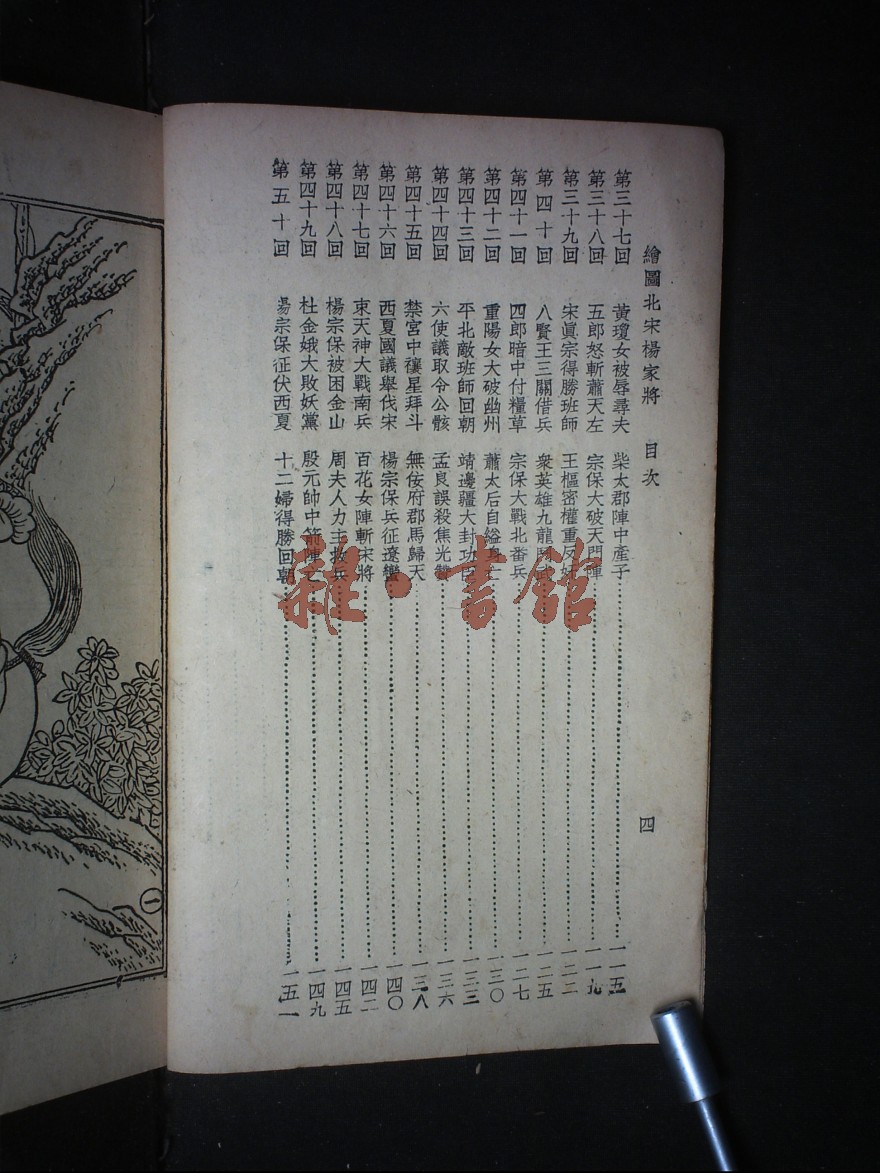 繪圖北宋楊家將 目次 四
第三十七回 黃瓊女被辱尋夫 柴太郡陣中產子 一一五
第三十八回 五郎怒斬蕭天左 宗保大破天門陣 一一九
第三十九回 宋眞宗得勝班師 王樞密權重反奸 一二二
第四十回 八賢王三關借兵 衆英雄九龍 一二五
第四十一回 四郎暗中付糧草 宗保大戰北番兵 一二七
第四十二回 重陽女大破幽州 蕭太后自縊身亡 一三〇
第四十三回 平北敵班師回朝 靖邊疆大封功臣 一三三
第四十四回 六使議取令公骸 孟良誤殺焦光贊 一三六
第四十五回 禁宮中禳星拜斗 無佞府郡馬歸天 一三八
第四十六回 西夏國議舉伐宋 楊宗保兵征遼蠻 一四〇
第四十七回 束天神大戰南兵 百花女陣斬宋將 一四二
第四十八回 楊宗保被困金山 周夫人力主救兵 一四五
第四十九回 杜金娥大敗妖黨 殷元帥中箭陣亡 一四九
第五十回 楊宗保征伏西夏 十二婦得勝回朝 一五一
雜·書館
一